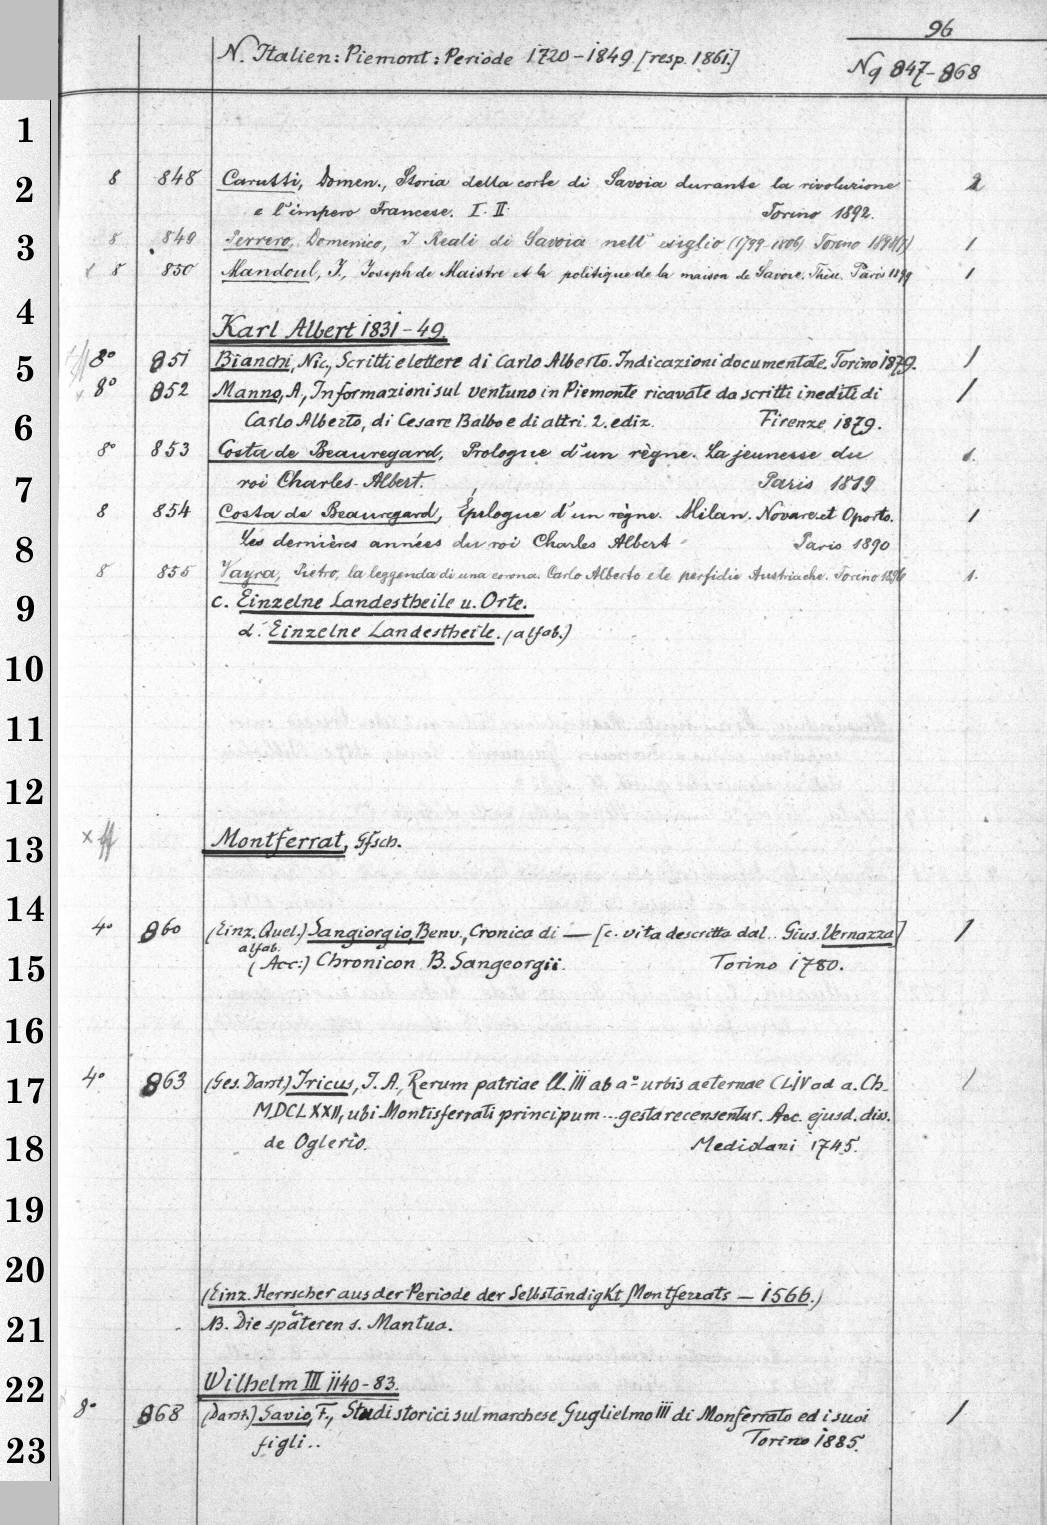 96
N. Italien: Piemont: Periode 1720-1849 [resp. 1861.]
Nq 847-868
1
2
8 848 Carutti, Domen., Storia della corte di Savoia durante la rivoluzione 2
e l'impero Francese. I. II. Torino 1892.
3
8 849 Perrero, Domenico, I Reali di Savoia nell' esiglio (1799-1806) Torino 1
x 8 850 Mandoul, J., Joseph de Maistre et la politique de la maison de Savoie. Thèse. Paris 1899 1
4
Karl Albert 1831-49.
5
8° 851 Bianchi, Nic., Scritti e lettere di Carlo Alberto. Indicazioni documentate. Torino 1879. 1
x 8° 852 Manno, A., Informazioni sul ventuno in Piemonte ricavate da scritti inediti di 1
6
Carlo Alberto, di Cesare Balbo e di altri. 2. ediz. Firenze 1879.
8° 853 Costa de Beauregard, Prologue d'un règne. La jeunesse du 1.
7
roi Charles-Albert. Paris 1889
8 854 Costa de Beauregard, Épilogue d'un règne. Milan. Novare et Oporto. 1
8
Les dernières années du roi Charles Albert Paris 1890
8 855 Vayra, Pietro, la leggenda di una corona. Carlo Alberto e le perfidie Austriache. Torino 1896 1.
9
c. Einzelne Landestheile u. Orte.
d. Einzelne Landestheile. (alfab.)
10
11
12
13
x Montferrat, Gfsch.
14
4° 860 (Einz. Quel.) Sangiorgio, Benv., Cronica di — [c. vita descritta dal.. Gius. Vernazza] 1
alfab.
15
(Acc:) Chronicon B. Sangeorgii. Torino 1780.
16
17
4° 863 (Ges. Darst.) Iricus, J. A., Rerum patriae ll. III ab a° urbis aeternae CLIV ad a. Ch. 1
MDCLXXII, ubi Montisferrati principum... gesta recensentur. Acc. ejusd. diss.
18
de Oglerio. Mediolani 1745.
19
20
(Einz. Herrscher aus der Periode der Selbständigkt Montferrats — 1566.)
21
NB. Die späteren s. Mantua.
22
Wilhelm III 1140-83.
8° 868 (Darst.) Savio, F., Studi storici sul marchese Guglielmo III di Monferrato ed i suoi 1
23
figli.. Torino 1885.